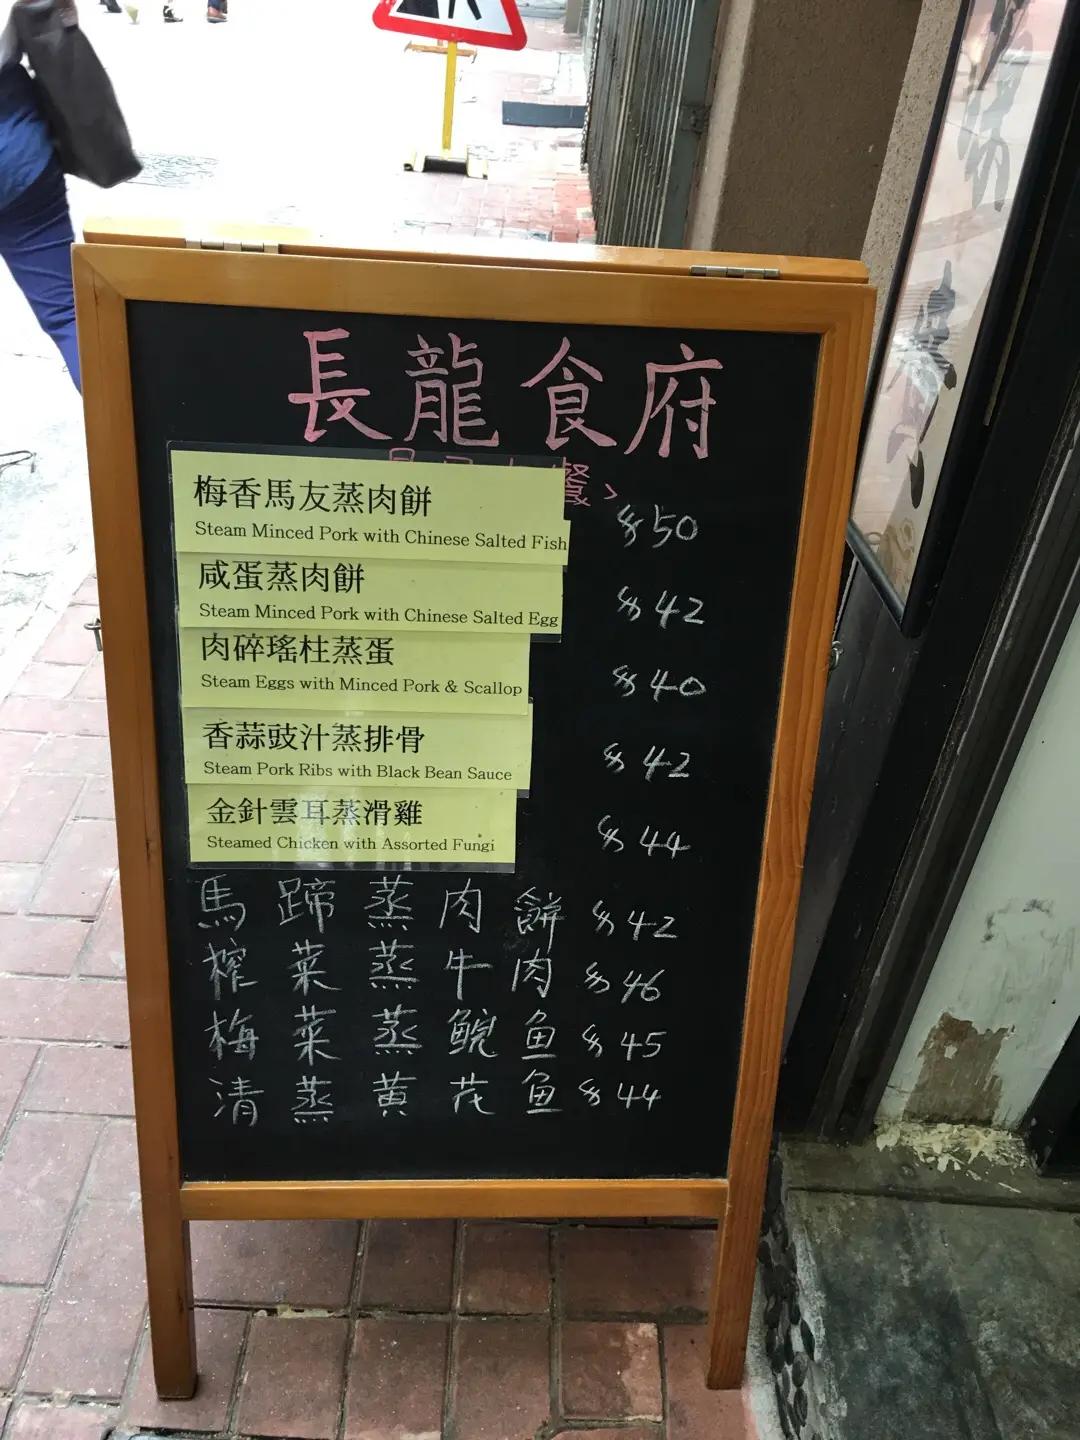 長龍食府
餐
梅香馬友蒸肉餅
Steam Minced Pork with Chinese Salted Fish
$50
咸蛋蒸肉餅
Steam Minced Pork with Chinese Salted Egg
$42
肉碎瑤柱蒸蛋
Steam Eggs with Minced Pork & Scallop
$40
香蒜豉汁蒸排骨
Steam Pork Ribs with Black Bean Sauce
$42
金針雲耳蒸滑雞
Steamed Chicken with Assorted Fungi
$44
馬蹄蒸肉餅 $42
榨菜蒸牛肉 $46
梅菜蒸鯇鱼 $45
清蒸黄花鱼 $44